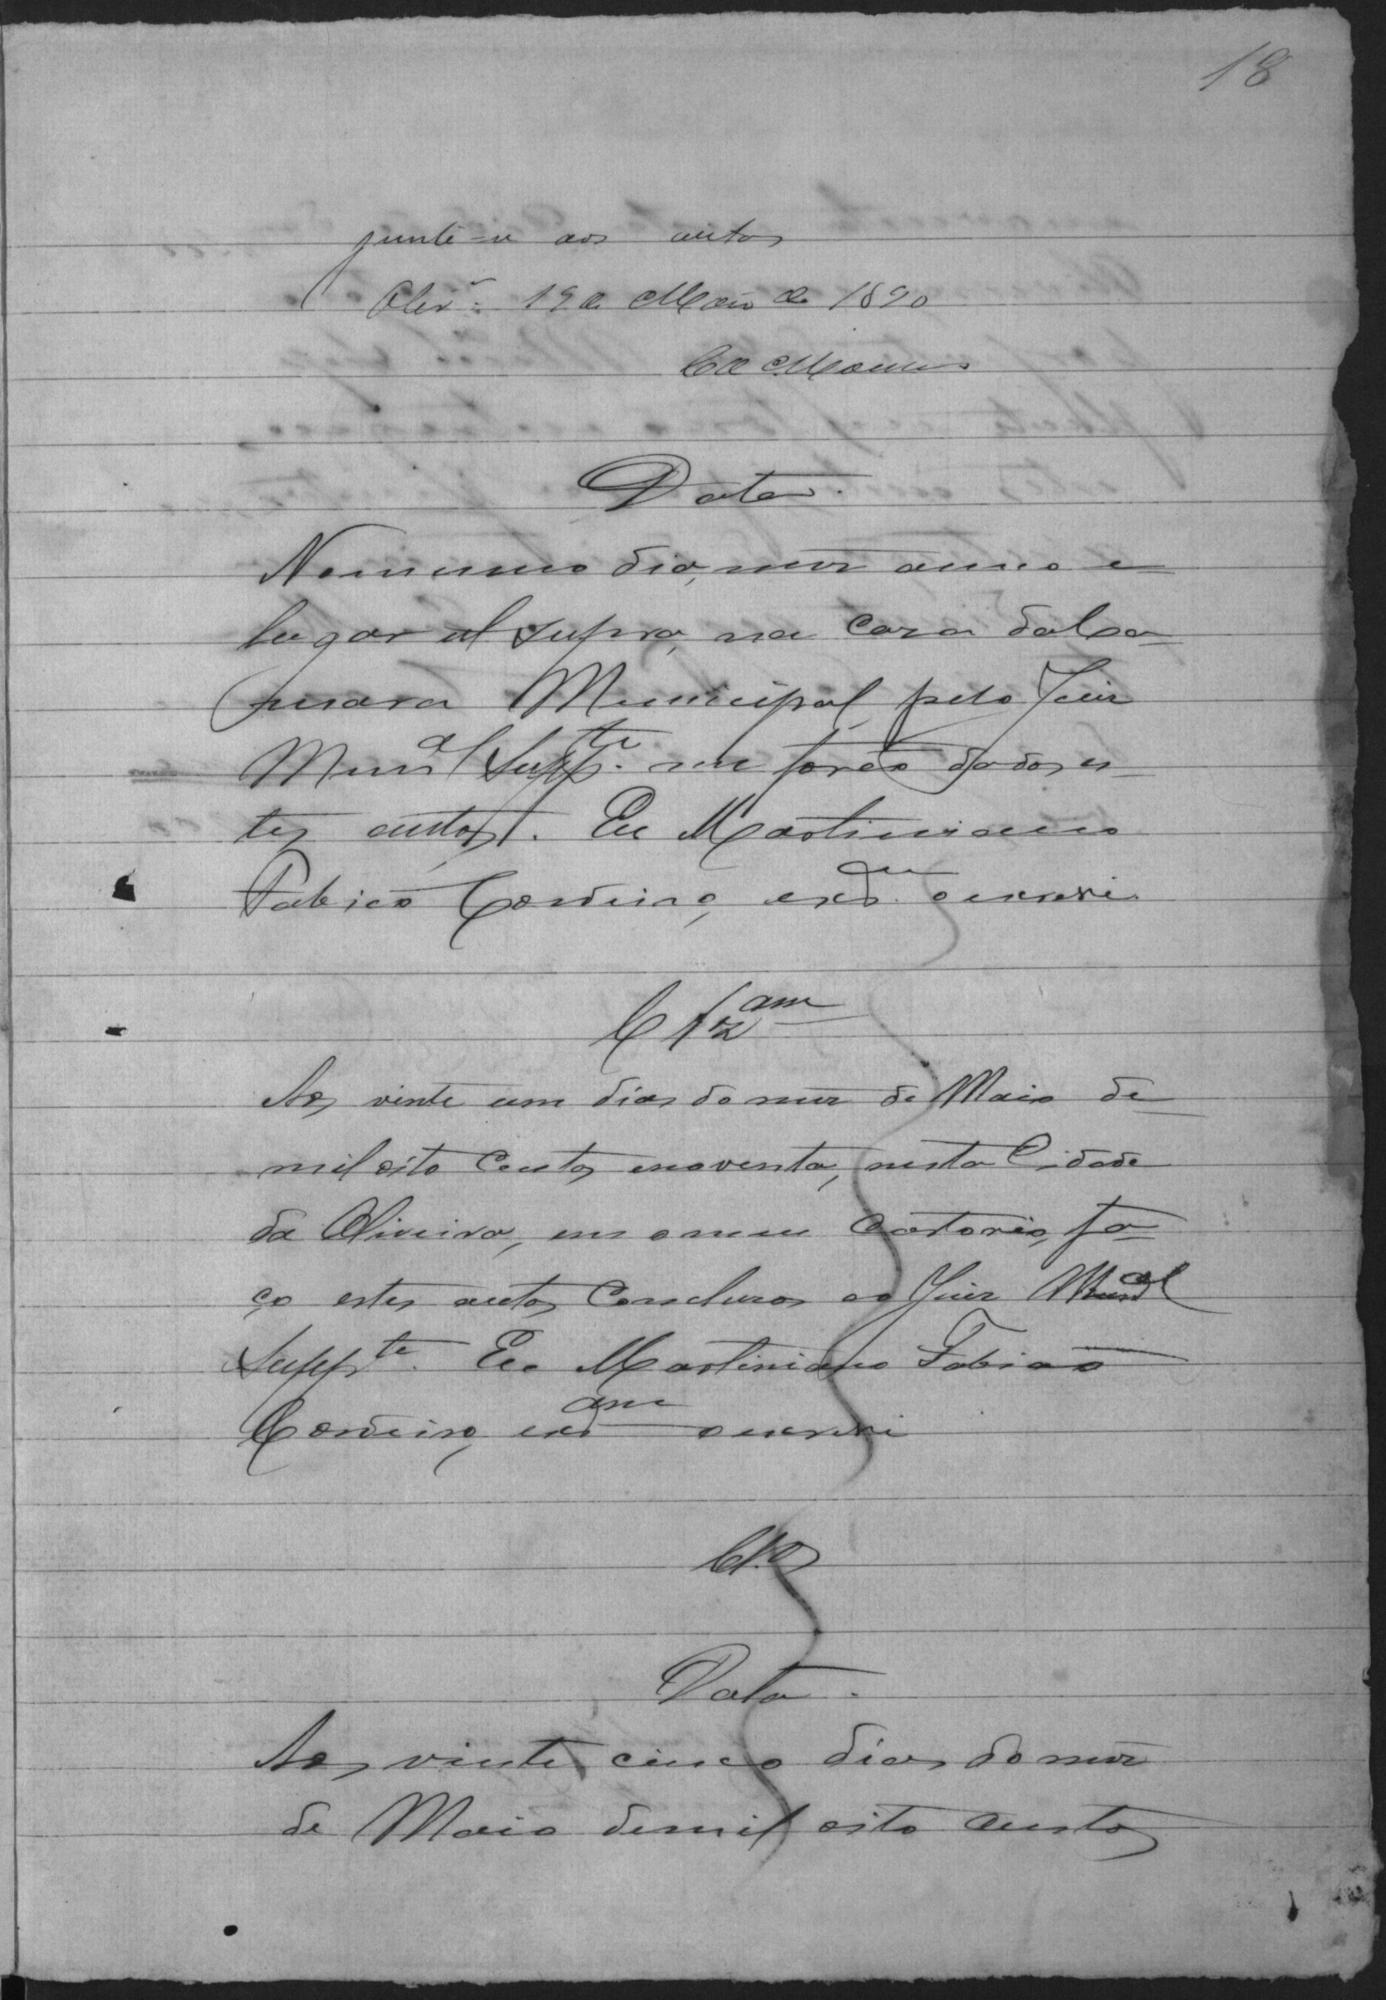 18
junte-se aos autos
Olivrª 19 de Maio de 1890
Data.
No mesmo dia, mez anno e
lugar al supra, na caza da Ca-
mara Municipal, pelo Juiz
Munal Suppte. me forão dados es-
tes autos. Eu Martiniano
Fabião Cordeiro, escram o escrevi
Clzam
Aos vinte um dias do mez de Maio de
mil oito centos enoventa, nesta Cidade
da Oliveira, em o meu Cartorio, fa-
ço estes autos Concluzos ao Juiz Munal
Suppte. Eu Martiniano Fabiao
Cordeiro, escam o escrevi
Clos
Data.
Aos vinte cinco dias do mez
de Maio de mil oito centos